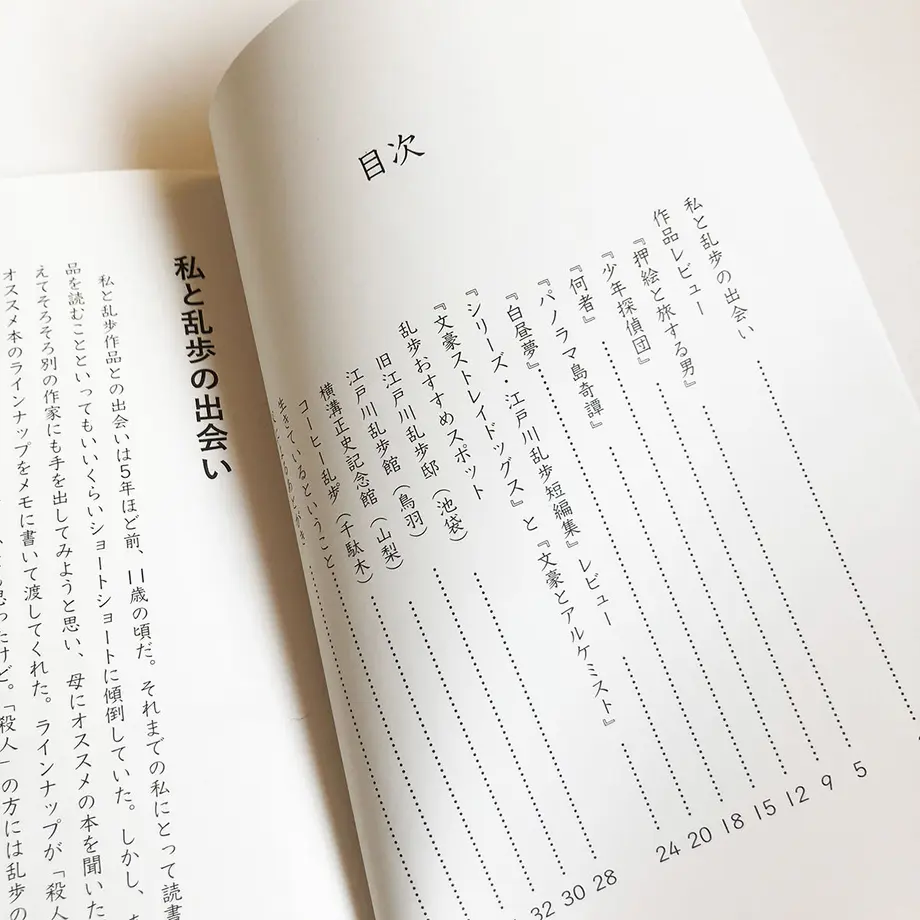 目次
私と乱歩の出会い
作品レビュー
『押絵と旅する男』
『少年探偵団』
『何者』
『パノラマ島奇譚』
『白昼夢』
『シリーズ・江戸川乱歩短編集』レビュー
『文豪ストレイドッグス』と『文豪とアルケミスト』
乱歩おすすめスポット
旧江戸川乱歩邸（池袋）
江戸川乱歩館（鳥羽）
横溝正史記念館（山梨）
コーヒー乱歩゜（千駄木）
生きているということ
5
9
12
15
18
20
24
28
30
32
私と乱歩の出会い
私と乱歩作品との出会いは5年ほど前、11歳の頃だ。それまでの私にとって読書
品を読むことといってもいいくらいショートショートに傾倒していた。しかし、
えてそろそろ別の作家にも手を出してみようと思い、母にオススメの本を聞いた
オススメ本のラインナップをメモに書いて渡してくれた。ラインナップが「殺人
思ったけど。「殺人」の方には乱歩の